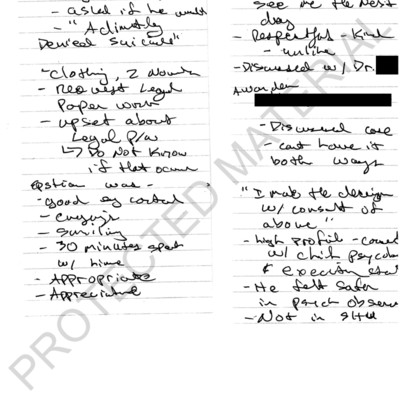 - asked if he would
- "Adimitly
Denied suicide"
- clothing, 2
- Request Legal
Paper work
- upset about
Legal p/w
↳ Do Not Know
if that occur
was -
- good eye contact
-
- smiling
- 30 minutes spent
w/ him
- Appropriate
- Appreciative
see me the next
day
- Respectful - Kind
- unlike
- Discussed w/ Dr.
Warden
- Discussed case
- cant have it
both ways
"I make the decision
w/ consult of
above"
- High profile -
w/ chief psych
& Execution
- He felt safer
in psych observ
- Not in SHU
PROTECTED MATERIAL